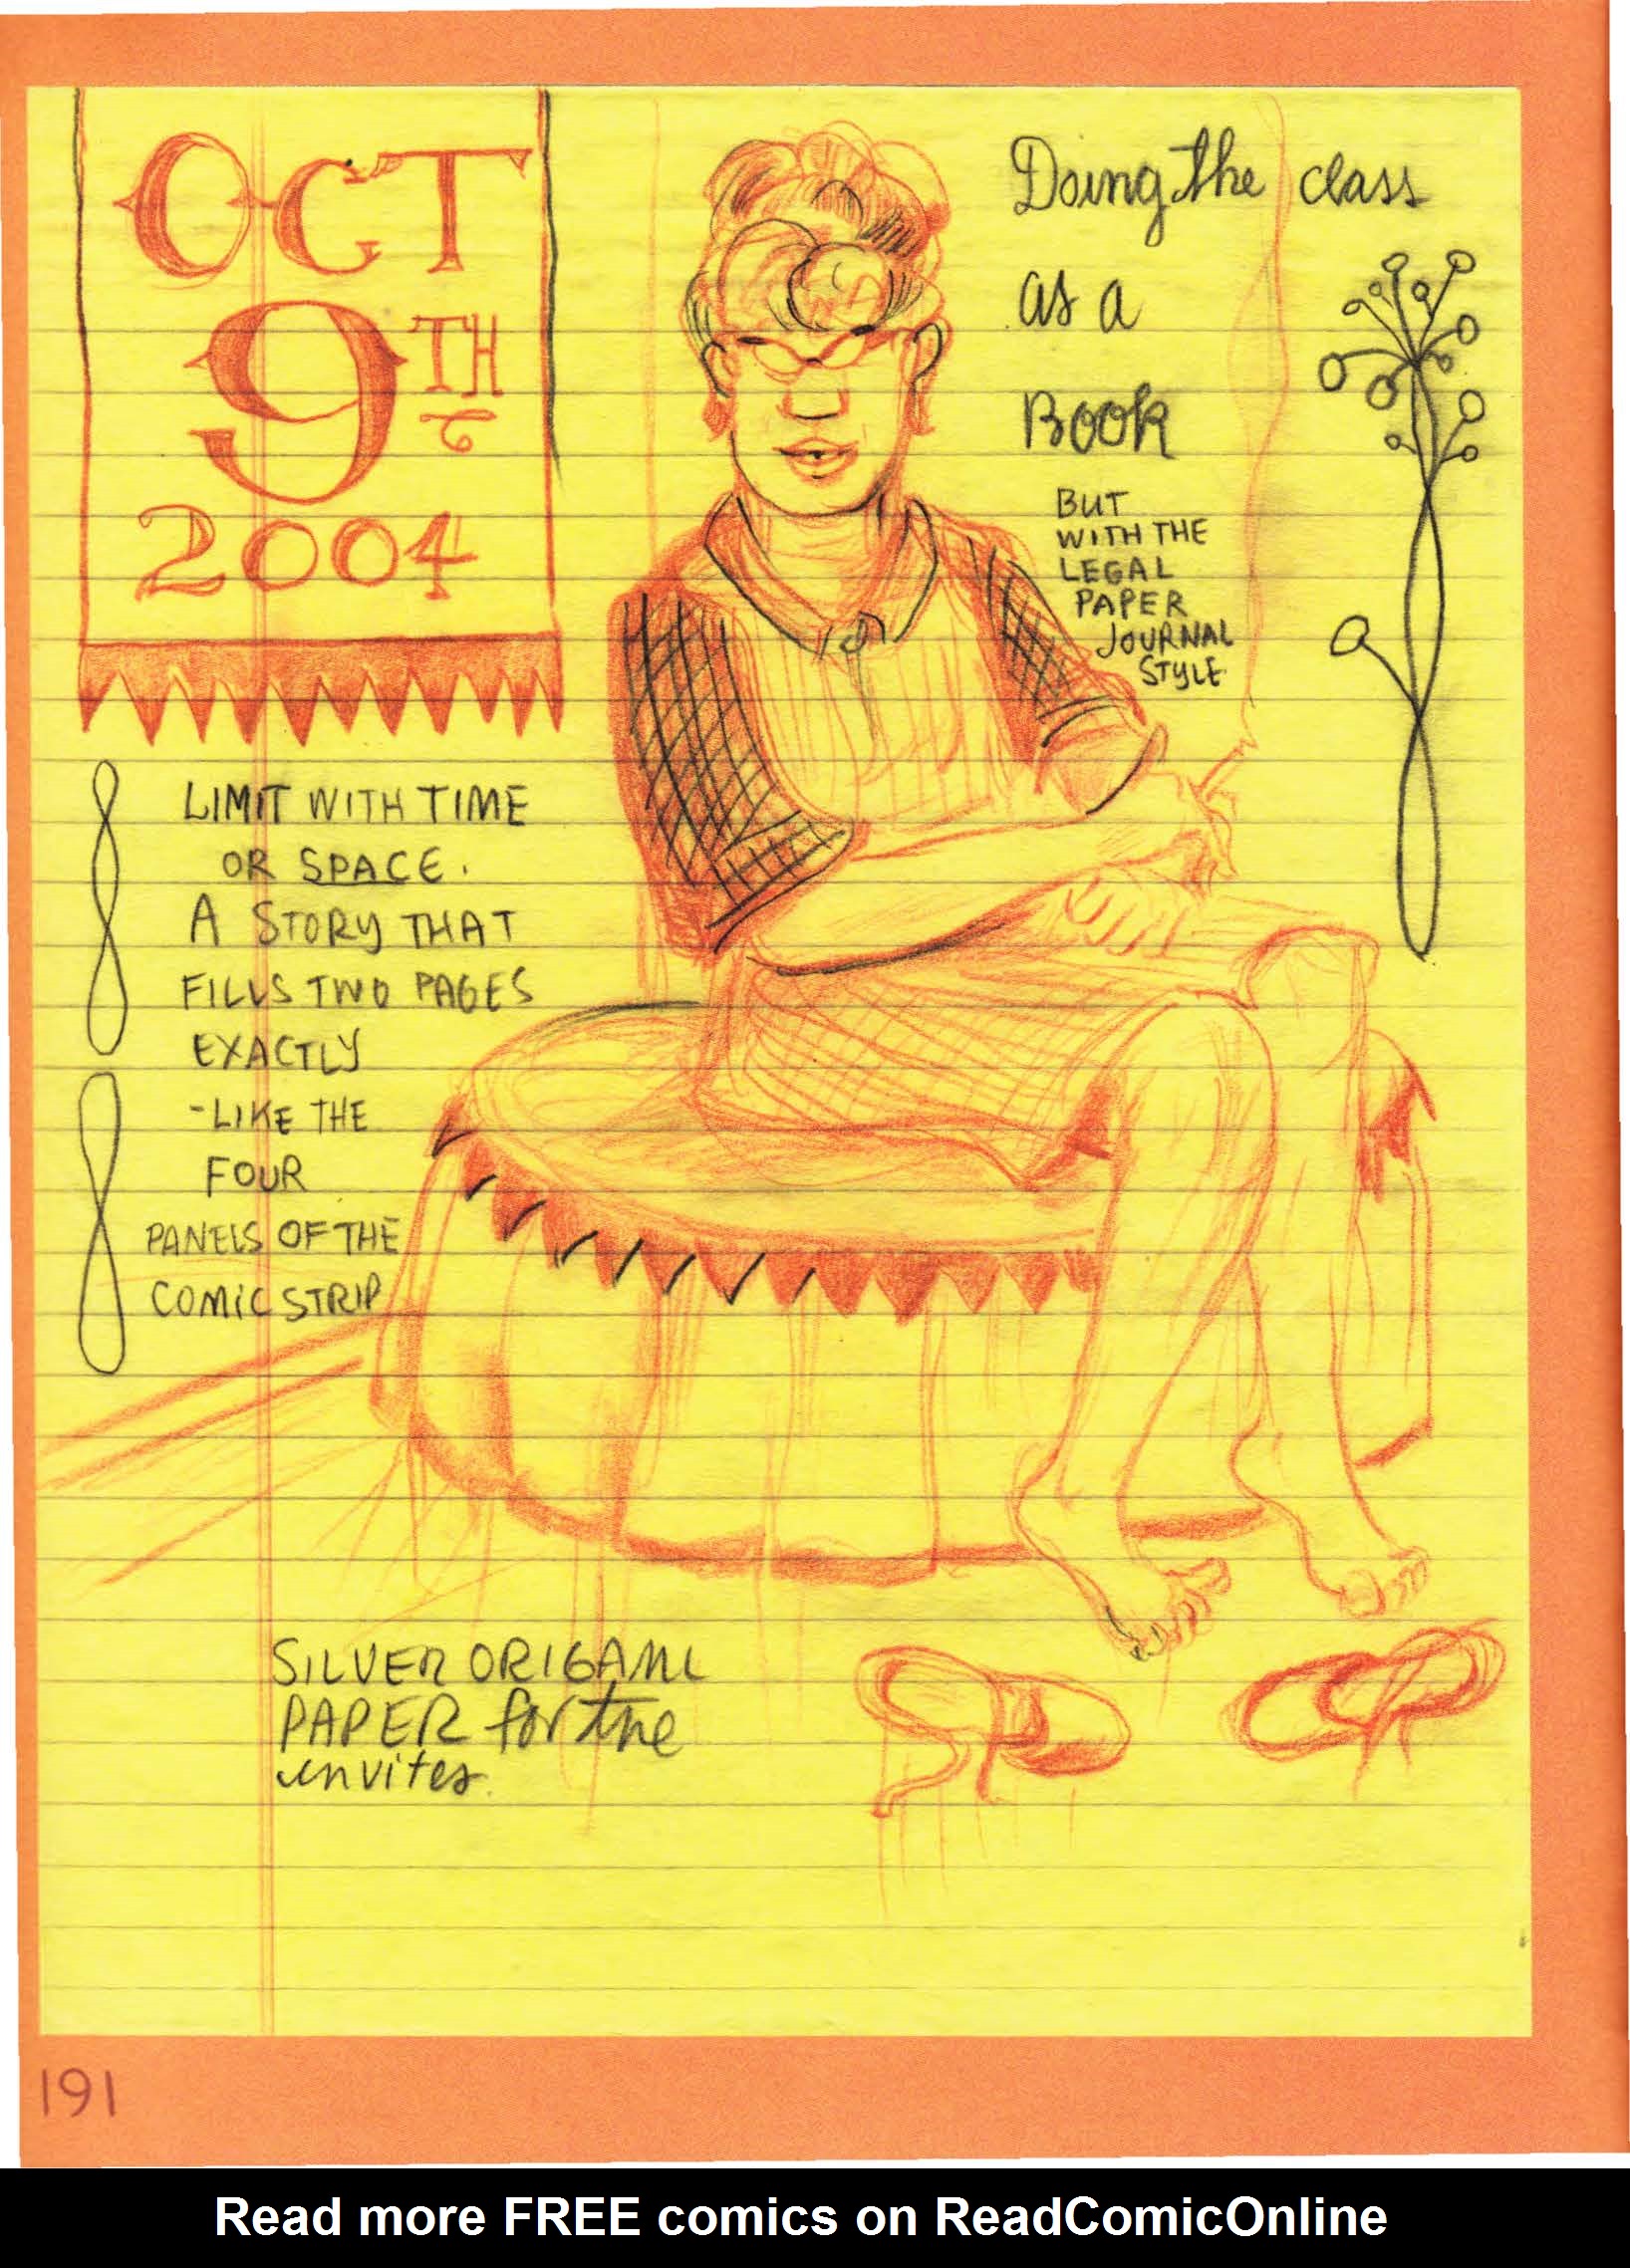 OCT
9TH
2004
Doing the class
as a
Book
BUT
WITH THE
LEGAL
PAPER
JOURNAL
STYLE
LIMIT WITH TIME
OR SPACE.
A STORY THAT
FILLS TWO PAGES
EXACTLY
-LIKE THE
FOUR
PANELS OF THE
COMIC STRIP
SILVER ORIGAMI
PAPER for the
invites.
191
Read more FREE comics on ReadComicOnline